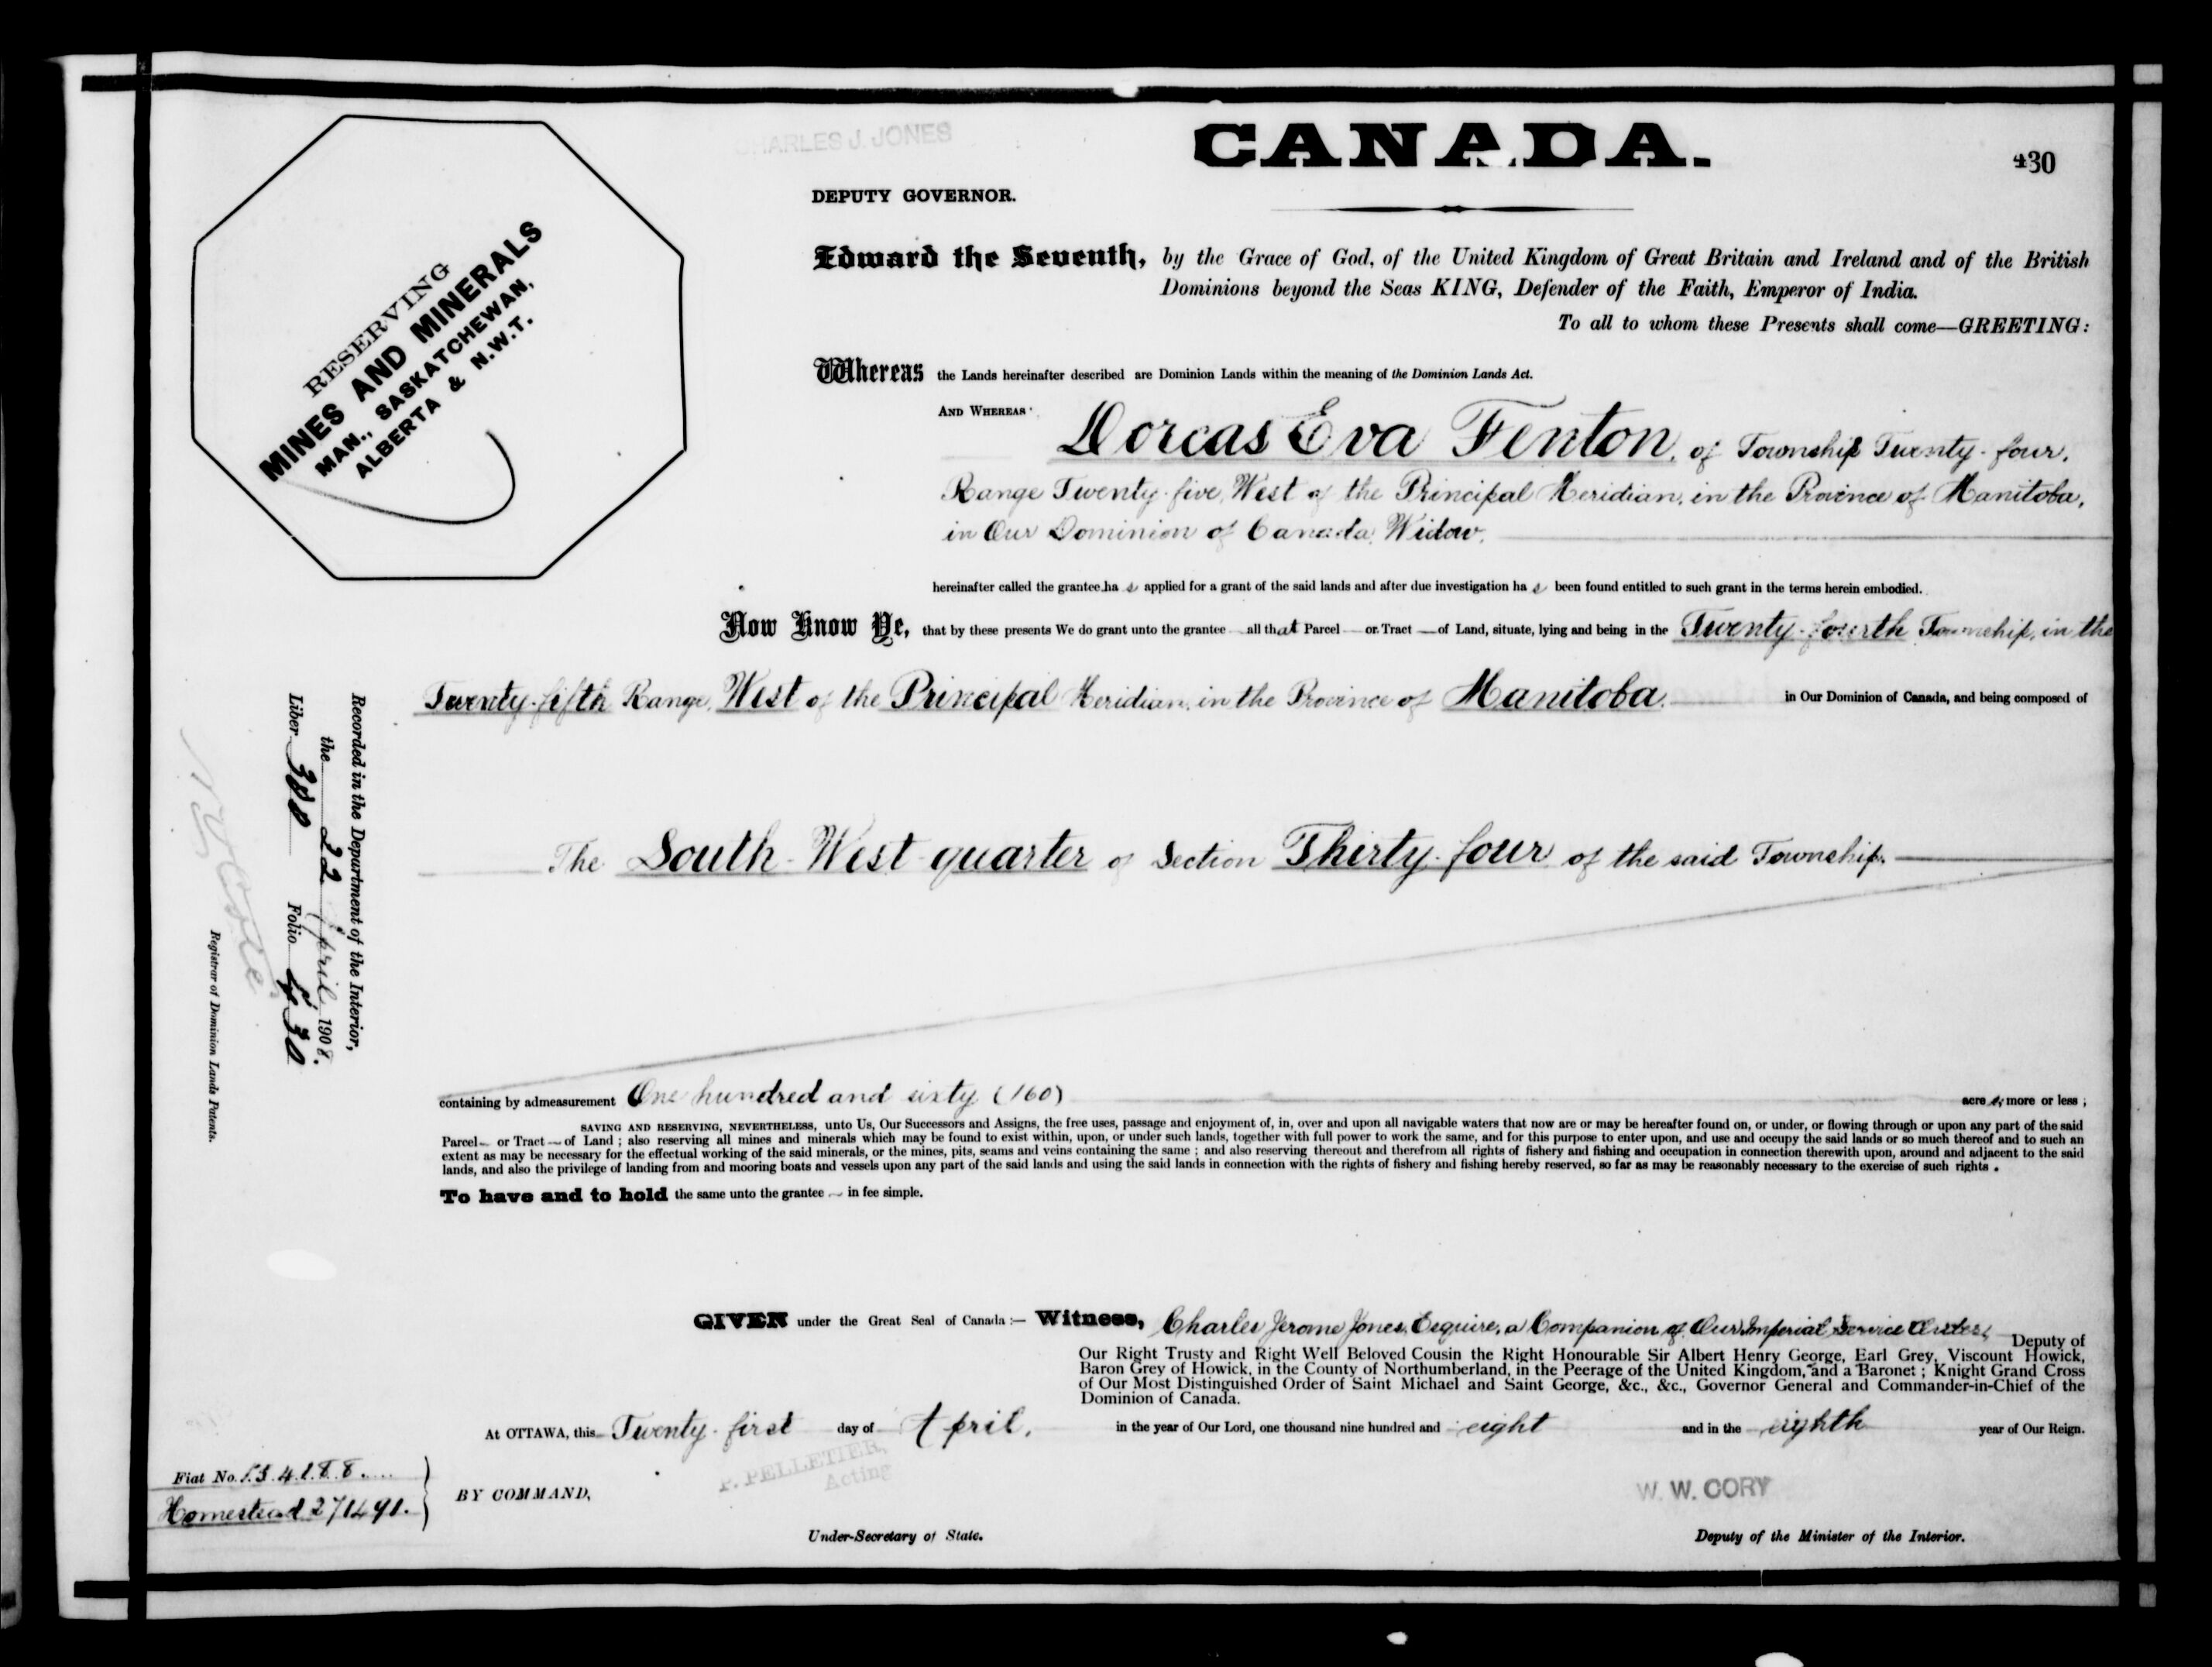 CHARLES J. JONES
CANADA.
430
DEPUTY GOVERNOR.
RESERVING
MINES AND MINERALS
MAN., SASKATCHEWAN,
ALBERTA & N.W.T.
Edward the Seventh, by the Grace of God, of the United Kingdom of Great Britain and Ireland and of the British
Dominions beyond the Seas KING, Defender of the Faith, Emperor of India.
To all to whom these Presents shall come—GREETING:
Whereas the Lands hereinafter described are Dominion Lands within the meaning of the Dominion Lands Act.
AND WHEREAS Dorcas Eva Fenton, of Township Twenty-four,
Range Twenty-five, West of the Principal Meridian, in the Province of Manitoba,
in Our Dominion of Canada, Widow,
hereinafter called the grantee has applied for a grant of the said lands and after due investigation has been found entitled to such grant in the terms herein embodied.
Now Know Ye, that by these presents We do grant unto the grantee all that Parcel or Tract of Land, situate, lying and being in the Twenty-fourth Township, in the
Twenty-fifth Range, West of the Principal Meridian, in the Province of Manitoba, in Our Dominion of Canada, and being composed of
The South-West quarter of Section Thirty-four of the said Township.
Recorded in the Department of the Interior,
the 22 April, 1908.
Liber 380 Folio 430
Registrar of Dominion Lands Patents.
containing by admeasurement One hundred and sixty (160) acres, more or less;
SAVING AND RESERVING, NEVERTHELESS, unto Us, Our Successors and Assigns, the free uses, passage and enjoyment of, in, over and upon all navigable waters that now are or may be hereafter found on, or under, or flowing through or upon any part of the said
Parcel or Tract of Land; also reserving all mines and minerals which may be found to exist within, upon, or under such lands, together with full power to work the same, and for this purpose to enter upon, and use and occupy the said lands or so much thereof and to such an
extent as may be necessary for the effectual working of the said minerals, or the mines, pits, seams and veins containing the same; and also reserving thereout and therefrom all rights of fishery and fishing and occupation in connection therewith upon, around and adjacent to the said
lands, and also the privilege of landing from and mooring boats and vessels upon any part of the said lands and using the said lands in connection with the rights of fishery and fishing hereby reserved, so far as may be reasonably necessary to the exercise of such rights.
To have and to hold the same unto the grantee in fee simple.
GIVEN under the Great Seal of Canada:— Witness, Charles Jerome Jones, Esquire, a Companion of Our Imperial Service Order, Deputy of
Our Right Trusty and Right Well Beloved Cousin the Right Honourable Sir Albert Henry George, Earl Grey, Viscount Howick,
Baron Grey of Howick, in the County of Northumberland, in the Peerage of the United Kingdom, and a Baronet; Knight Grand Cross
of Our Most Distinguished Order of Saint Michael and Saint George, &c., &c., Governor General and Commander-in-Chief of the
Dominion of Canada.
At OTTAWA, this Twenty-first day of April, in the year of Our Lord, one thousand nine hundred and eight and in the eighth year of Our Reign.
P. PELLETIER,
Acting
Fiat No.
Homestead 271491.
BY COMMAND,
W. W. CORY
Under-Secretary of State.
Deputy of the Minister of the Interior.